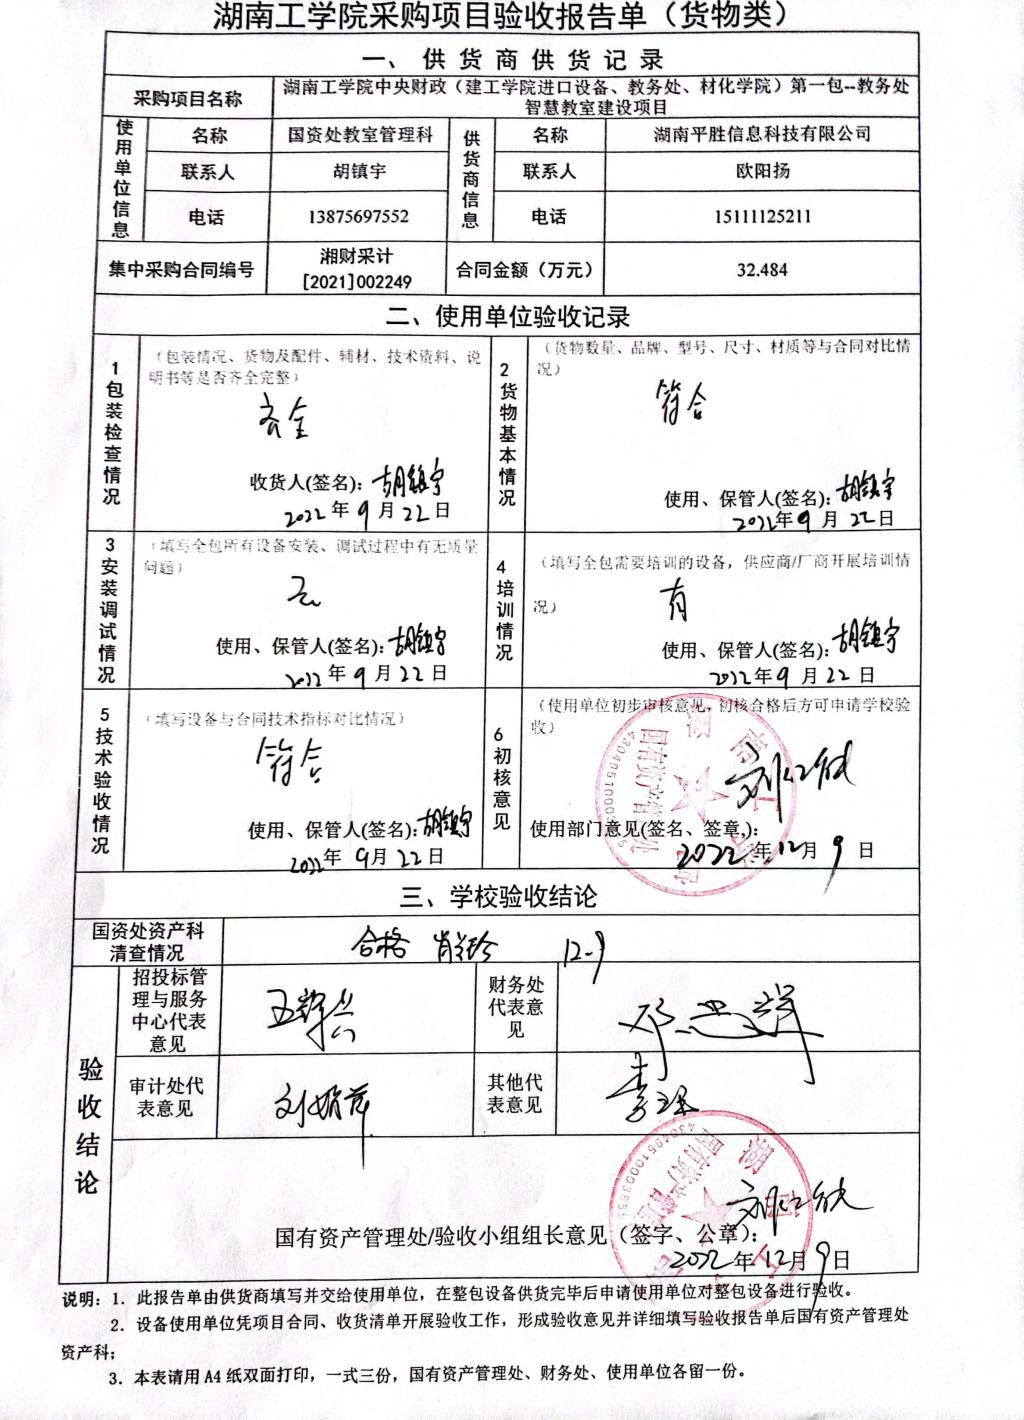 湖南工学院采购项目验收报告单（货物类）
一、供货商供货记录
采购项目名称
湖南工学院中央财政（建工学院进口设备、教务处、材化学院）第一包--教务处
智慧教室建设项目
使用单位信息
名称 国资处教室管理科
供货商信息
名称 湖南平胜信息科技有限公司
联系人 胡镇宇 联系人 欧阳扬
电话 13875697552 电话 15111125211
集中采购合同编号
湘财采计
[2021]002249
合同金额（万元） 32.484
二、使用单位验收记录
1包装检查情况
（包装情况、货物及配件、辅材、技术资料、说
明书等是否齐全完整）
齐全
收货人(签名): 胡镇宇
2022年9月22日
2货物基本情况
（货物数量、品牌、型号、尺寸、材质等与合同对比情
况）
符合
使用、保管人(签名): 胡镇宇
2022年9月22日
3安装调试情况
（填写全包所有设备安装、调试过程中有无质量
问题）
无
使用、保管人(签名): 胡镇宇
2022年9月22日
4培训情况
（填写全包需要培训的设备，供应商/厂商开展培训情
况）
有
使用、保管人(签名): 胡镇宇
2022年9月22日
5技术验收情况
（填写设备与合同技术指标对比情况）
符合
使用、保管人(签名): 胡镇宇
2022年9月22日
6初核意见
（使用单位初步审核意见，初核合格后方可申请学校验
收）
使用部门意见(签名、签章,):
2022年12月9日
国有资产管理处
三、学校验收结论
国资处资产科
清查情况
合格 12-9
验收结论
招投标管
理与服务
中心代表
意见
财务处
代表意
见
审计处代
表意见
刘娟萍
其他代
表意见
国有资产管理处/验收小组组长意见（签字、公章）：
2022年12月9日
国有资产管理处
说明：1．此报告单由供货商填写并交给使用单位，在整包设备供货完毕后申请使用单位对整包设备进行验收。
2．设备使用单位凭项目合同、收货清单开展验收工作，形成验收意见并详细填写验收报告单后国有资产管理处
资产科；
3．本表请用A4纸双面打印，一式三份，国有资产管理处、财务处、使用单位各留一份。